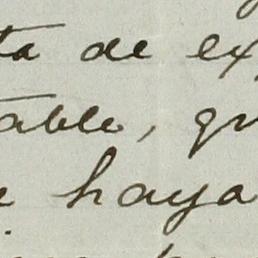 ta de ex
able, qu
e haya